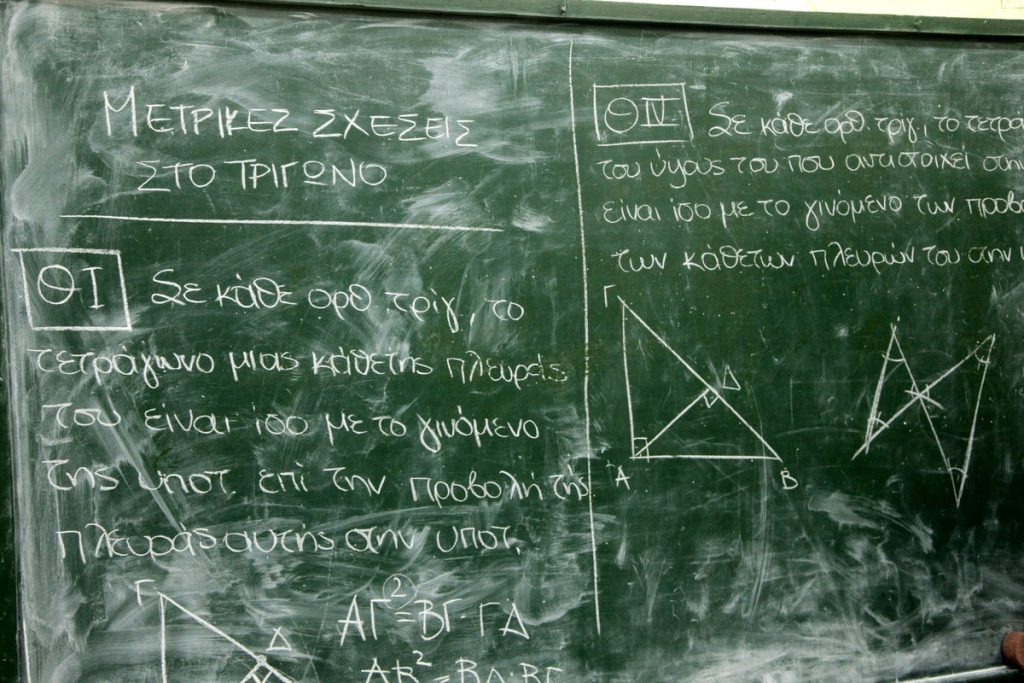 ΜΕΤΡΙΚΕΣ ΣΧΕΣΕΙΣ
ΣΤΟ ΤΡΙΓΩΝΟ
Θ I
Σε κάθε ορθ. τρίγ, το
τετράγωνο μιας κάθετης πλευράς
του είναι ίσο με το γινόμενο
της υποτ. επί την προβολή της
πλευράς αυτής στην υποτ.
Γ
Δ
ΑΓ²=ΒΓ·ΓΔ
ΑΒ²=ΒΔ·ΒΓ
Θ IV
Σε κάθε ορθ. τρίγ, το τετρά
του ύψους του που αντιστοιχεί στην
είναι ίσο με το γινόμενο των προβο
των κάθετων πλευρών του στην υ
Γ
Δ
Α
Β